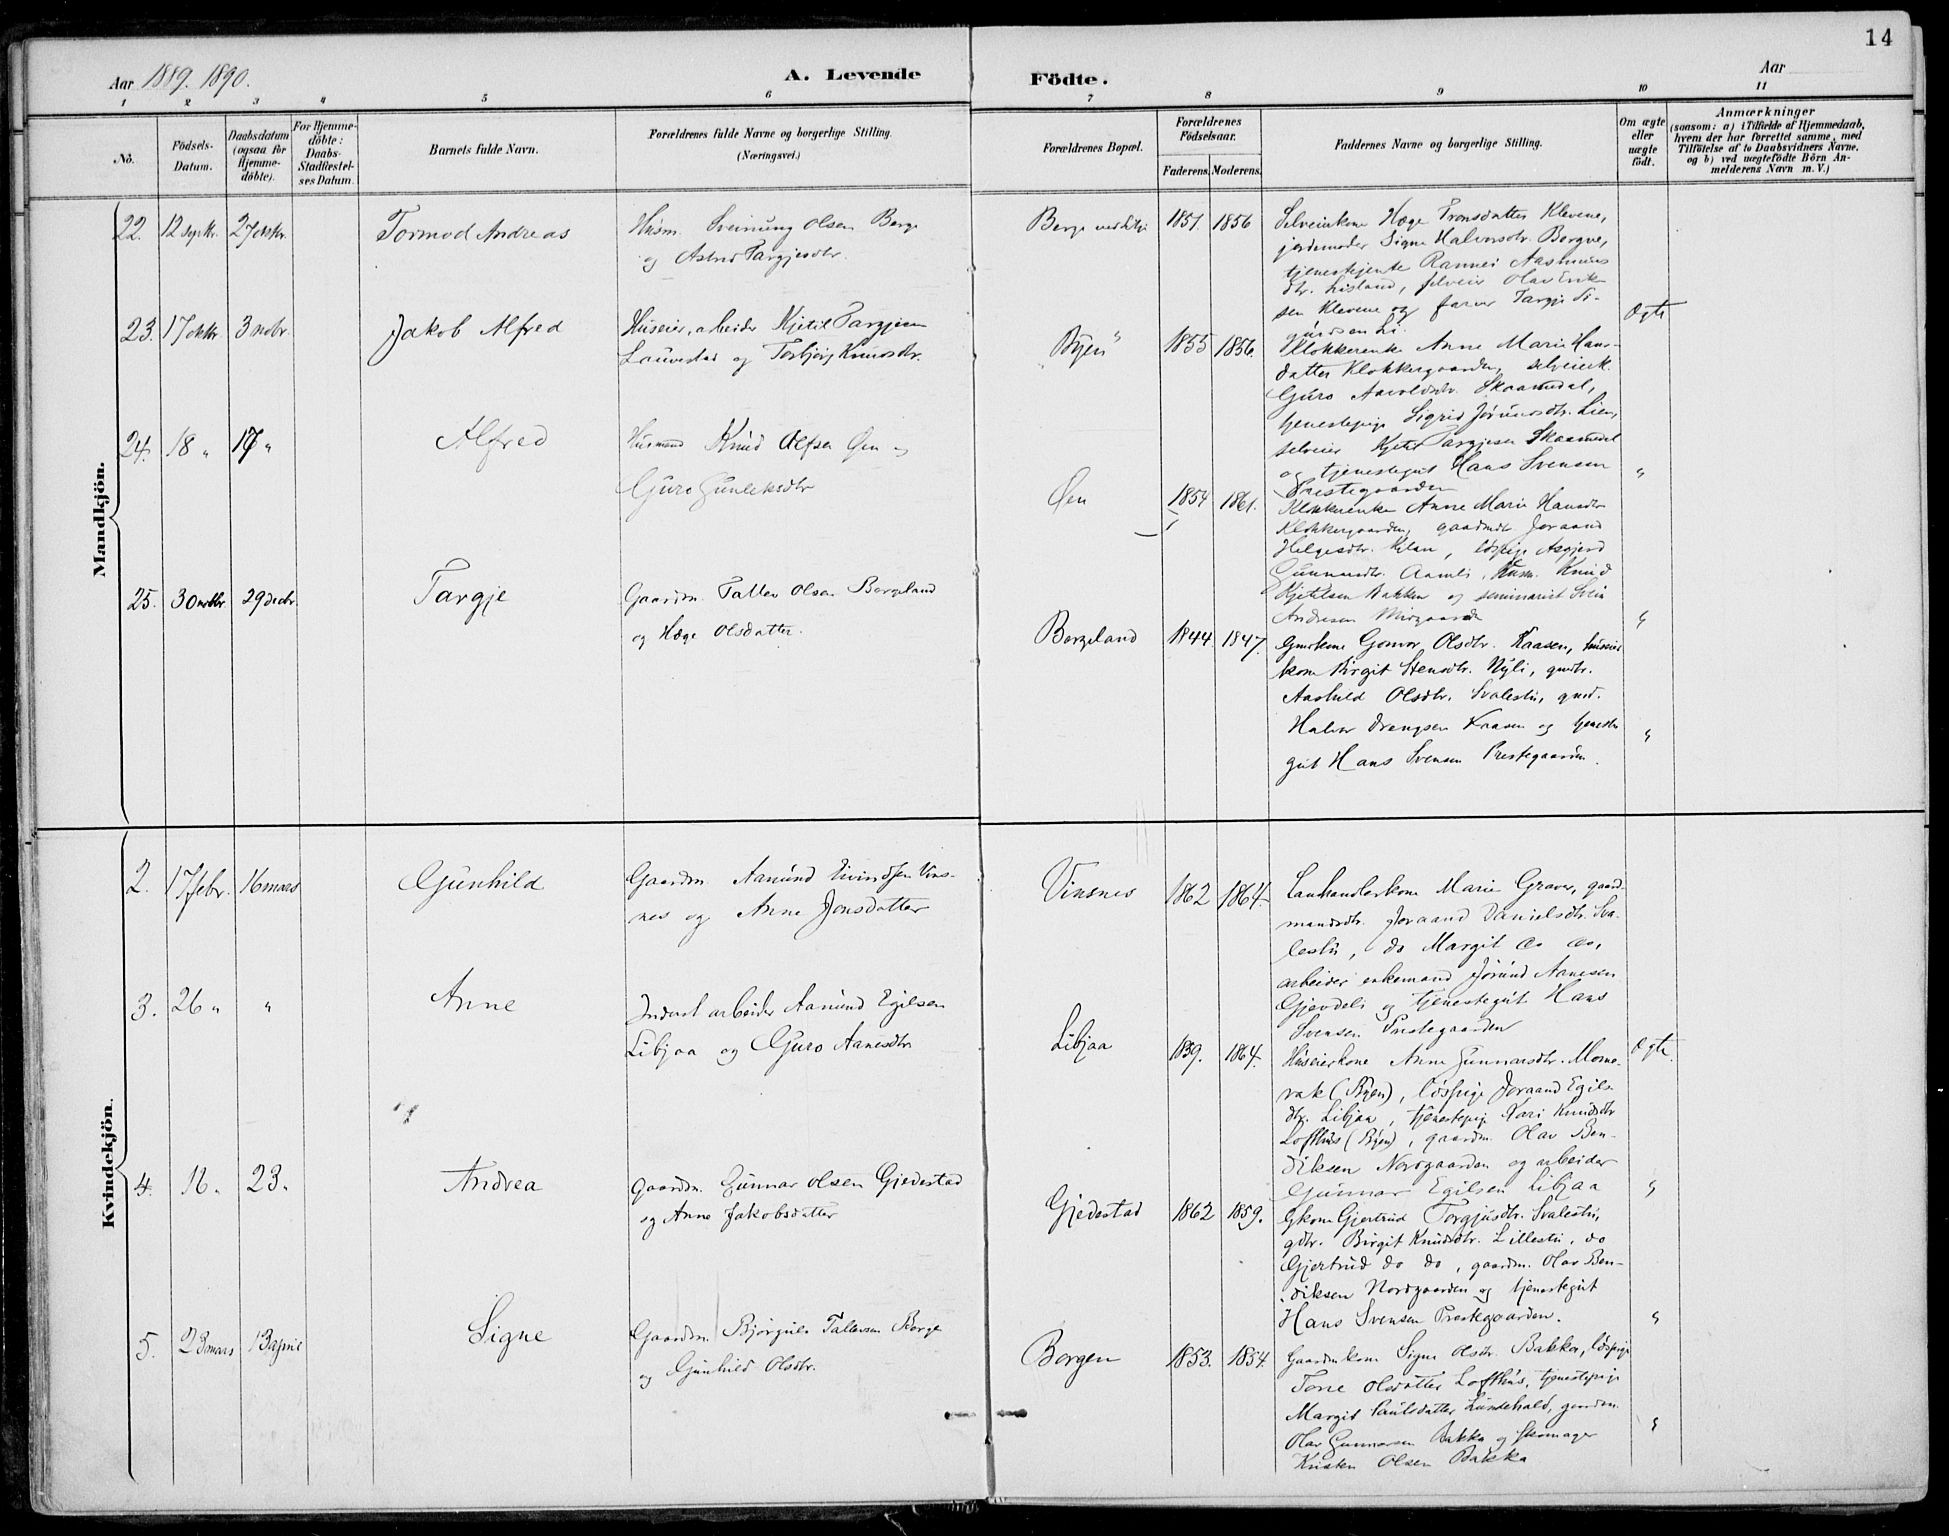 14
Aar 1889. 1890.
A. Levende Födte.
Aar
1 2 3 4 5 6 7 8 9 10 11
No.
Födsels-Datum.
Daabsdatum (ogsaa for Hjemme-döbte).
For Hjemme-döbte: Daabs-Stadfæstel-ses Datum.
Barnets fulde Navn.
Forældrenes fulde Navne og borgerlige Stilling.
(Næringsvei.)
Forældrenes Bopæl.
Forældrenes Födselsaar.
Faderens. Moderens.
Faddernes Navne og borgerlige Stilling.
Om ægte eller uægte födt.
Anmærkninger
(saasom: a) i Tilfælde af Hjemmedaab,
hvem der har forrettet samme, med
Tilföielse af to Daabsvidners Navne,
og b) ved uægtefödte Börn An-
melderens Navn m. V.)
Mandkjön.
22. 12 septbr. 27 oktbr. Tormod Andreas
Husm. Sveinung Olsen Berge
og Astrid Targjesdtr.
1851. 1856
Selveierkone Hæge Tronsdatter Klevene,
jordemoder Signe Halvorsdtr. Borgne,
tjenestejente Rannei Aasmunds
dtr. Lisland, selveier Olav Erik-
sen Klevene og farver Targje Si-
gurdsen Li.
Ægte
23. 17 oktbr 3 novbr. Jakob Alfred
Huseier, arbeider Kjetil Targjesen
Lauvestad og Torbjörg Knudsdtr.
Byen 1855 1856.
Klokkerenke Anne Marie Hans-
datter Klokkergaarden, selveierk.
Guro Aavoldsdtr. Skaamedal,
tjenestepige Sigrid Jörundsdtr. Lien,
selveier Kjetil Targjesen Skaamedal
og tjenestegut Hans Svensen
Prestegaarden
"
24. 18 " 17 " Alfred
Husmand Knud Olefsen Øen og
Guro Gunleiksdtr
Øen 1854 1861.
Klokkerenke Anne Marie Hansdtr
Klokkergaarden, gaardmdtr. Joraand
Helgesdtr. Kilan, löspige Asgjerd
Gunnarsdtr. Aamli, Husm. Knud
Kjetilsen Bakken og seminarist Svein
Andresen
"
25. 30 novbr. 29 decbr. Targje
Gaardm. Tallev Olsen Borgeland
og Hæge Olsdatter.
Borgeland 1844. 1847.
Gmkone Gonvor Olsdtr. Kaasen, huseier
kone Birgit Stensdtr. Nyli, gmdtr.
Aashild Olsdtr. Svalestu, gmd.
Halvor Drengsen Kaasen og tjeneste
gut Hans Svensen Prestegaarden.
"
Kvindekjön.
2. 17 febr. 16 mars Gunhild
Gaardm. Aamund Eivindsen Vins-
nes og Anne Jonsdatter
Vinsnes 1862 1864.
Lanhandlerkone Marie Graver, gaard-
mandsdtr. Joraand Danielsdtr. Sva-
lestu, do Margit do do,
arbeider enkemand Jörund Aanesen
Gjevdeli og tjenestegut Hans
Svensen Prestegaarden
Ægte.
3. 26 " " Anne
Inderst arbeider Aamund Egilsen
Libjaa og Guro Aanesdtr
Libjaa 1839. 1864.
Huseierkone Anne Gunnarsdtr. Mome-
vak (Byen), löspige Joraand Egils-
dtr. Libjaa, tjenestepig Kari Knudsdtr
Lofthus (Byen), gaardm. Olav Ben-
diksen Nordgaarden og arbeider
Gunnar Egilsen Libjaa
"
4. 16 " 23. Andrea
Gaardm. Gunnar Olsen Gjedestad
og Anne Jakobsdatter
Gjedestad 1862 1859.
Gkone Gjertrud Torgjusdtr. Svalestu,
gdtr. Birgit Knudsdtr. Lillestu, do
Gjertrud do do, gaardm. Olav Ben-
diksen Nordgaarden og tjenestegut
Hans Svensen Prestegaarden.
"
5. 28 mars 13 april Signe
Gaardm. Bjørgulv Tallevsen Berge
og Gunhild Olsdtr.
Borgen 1853. 1854.
Gaardmkone Signe Olsdtr. Bakka, löspige
Tone Olsdatter Lofthus, tjenestepige
Margit Paulsdatter Lundehald, gaardm.
Olav Gunnarsen Bakka og skomager
Kristen Olsen Bakka
"